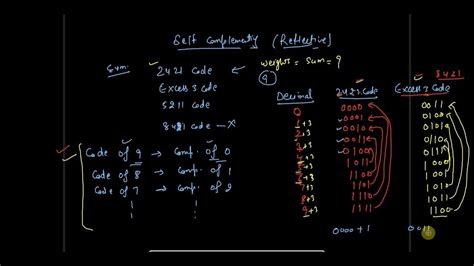 Self Complementing (Reflective)
Sum. 2421 Code weights = Sum = 9
Excess 3 Code 9
5211 Code
8421 Code —X
Code of 9 → Comp. of 0
Code of 8 → Comp. of 1
Code of 7 → Comp. of 2
8421
Decimal 2421 Code Excess 3 Code
0 0000 0011
1+3 0001
2+3 0010
3+3 0011
4+3
5+3 1011
6+3 1100
7+3 1101
8+3 1110
9+3 1111 1100
0000+1 0011